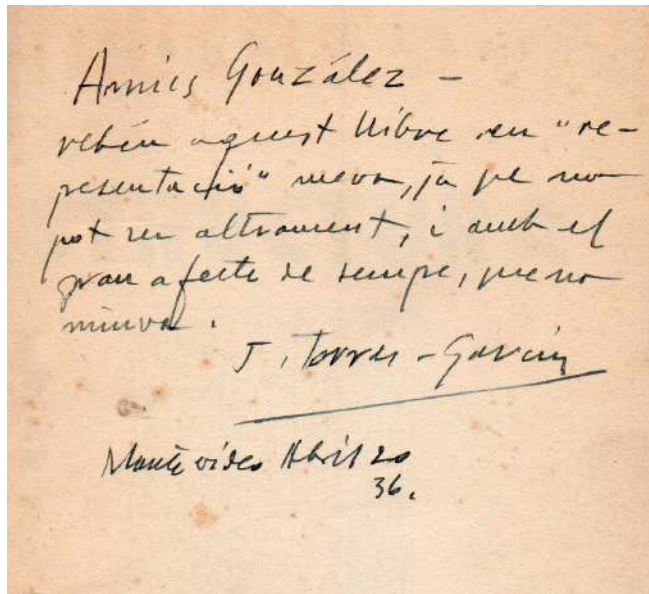 Amics González –
rebéu aquest llibre en "re-
presentació" meva, ja que no
pot ser altrament, i amb el
gran afecte de sempre, que no
minva.
J. Torres-García
Montevideo Abril 20
36.